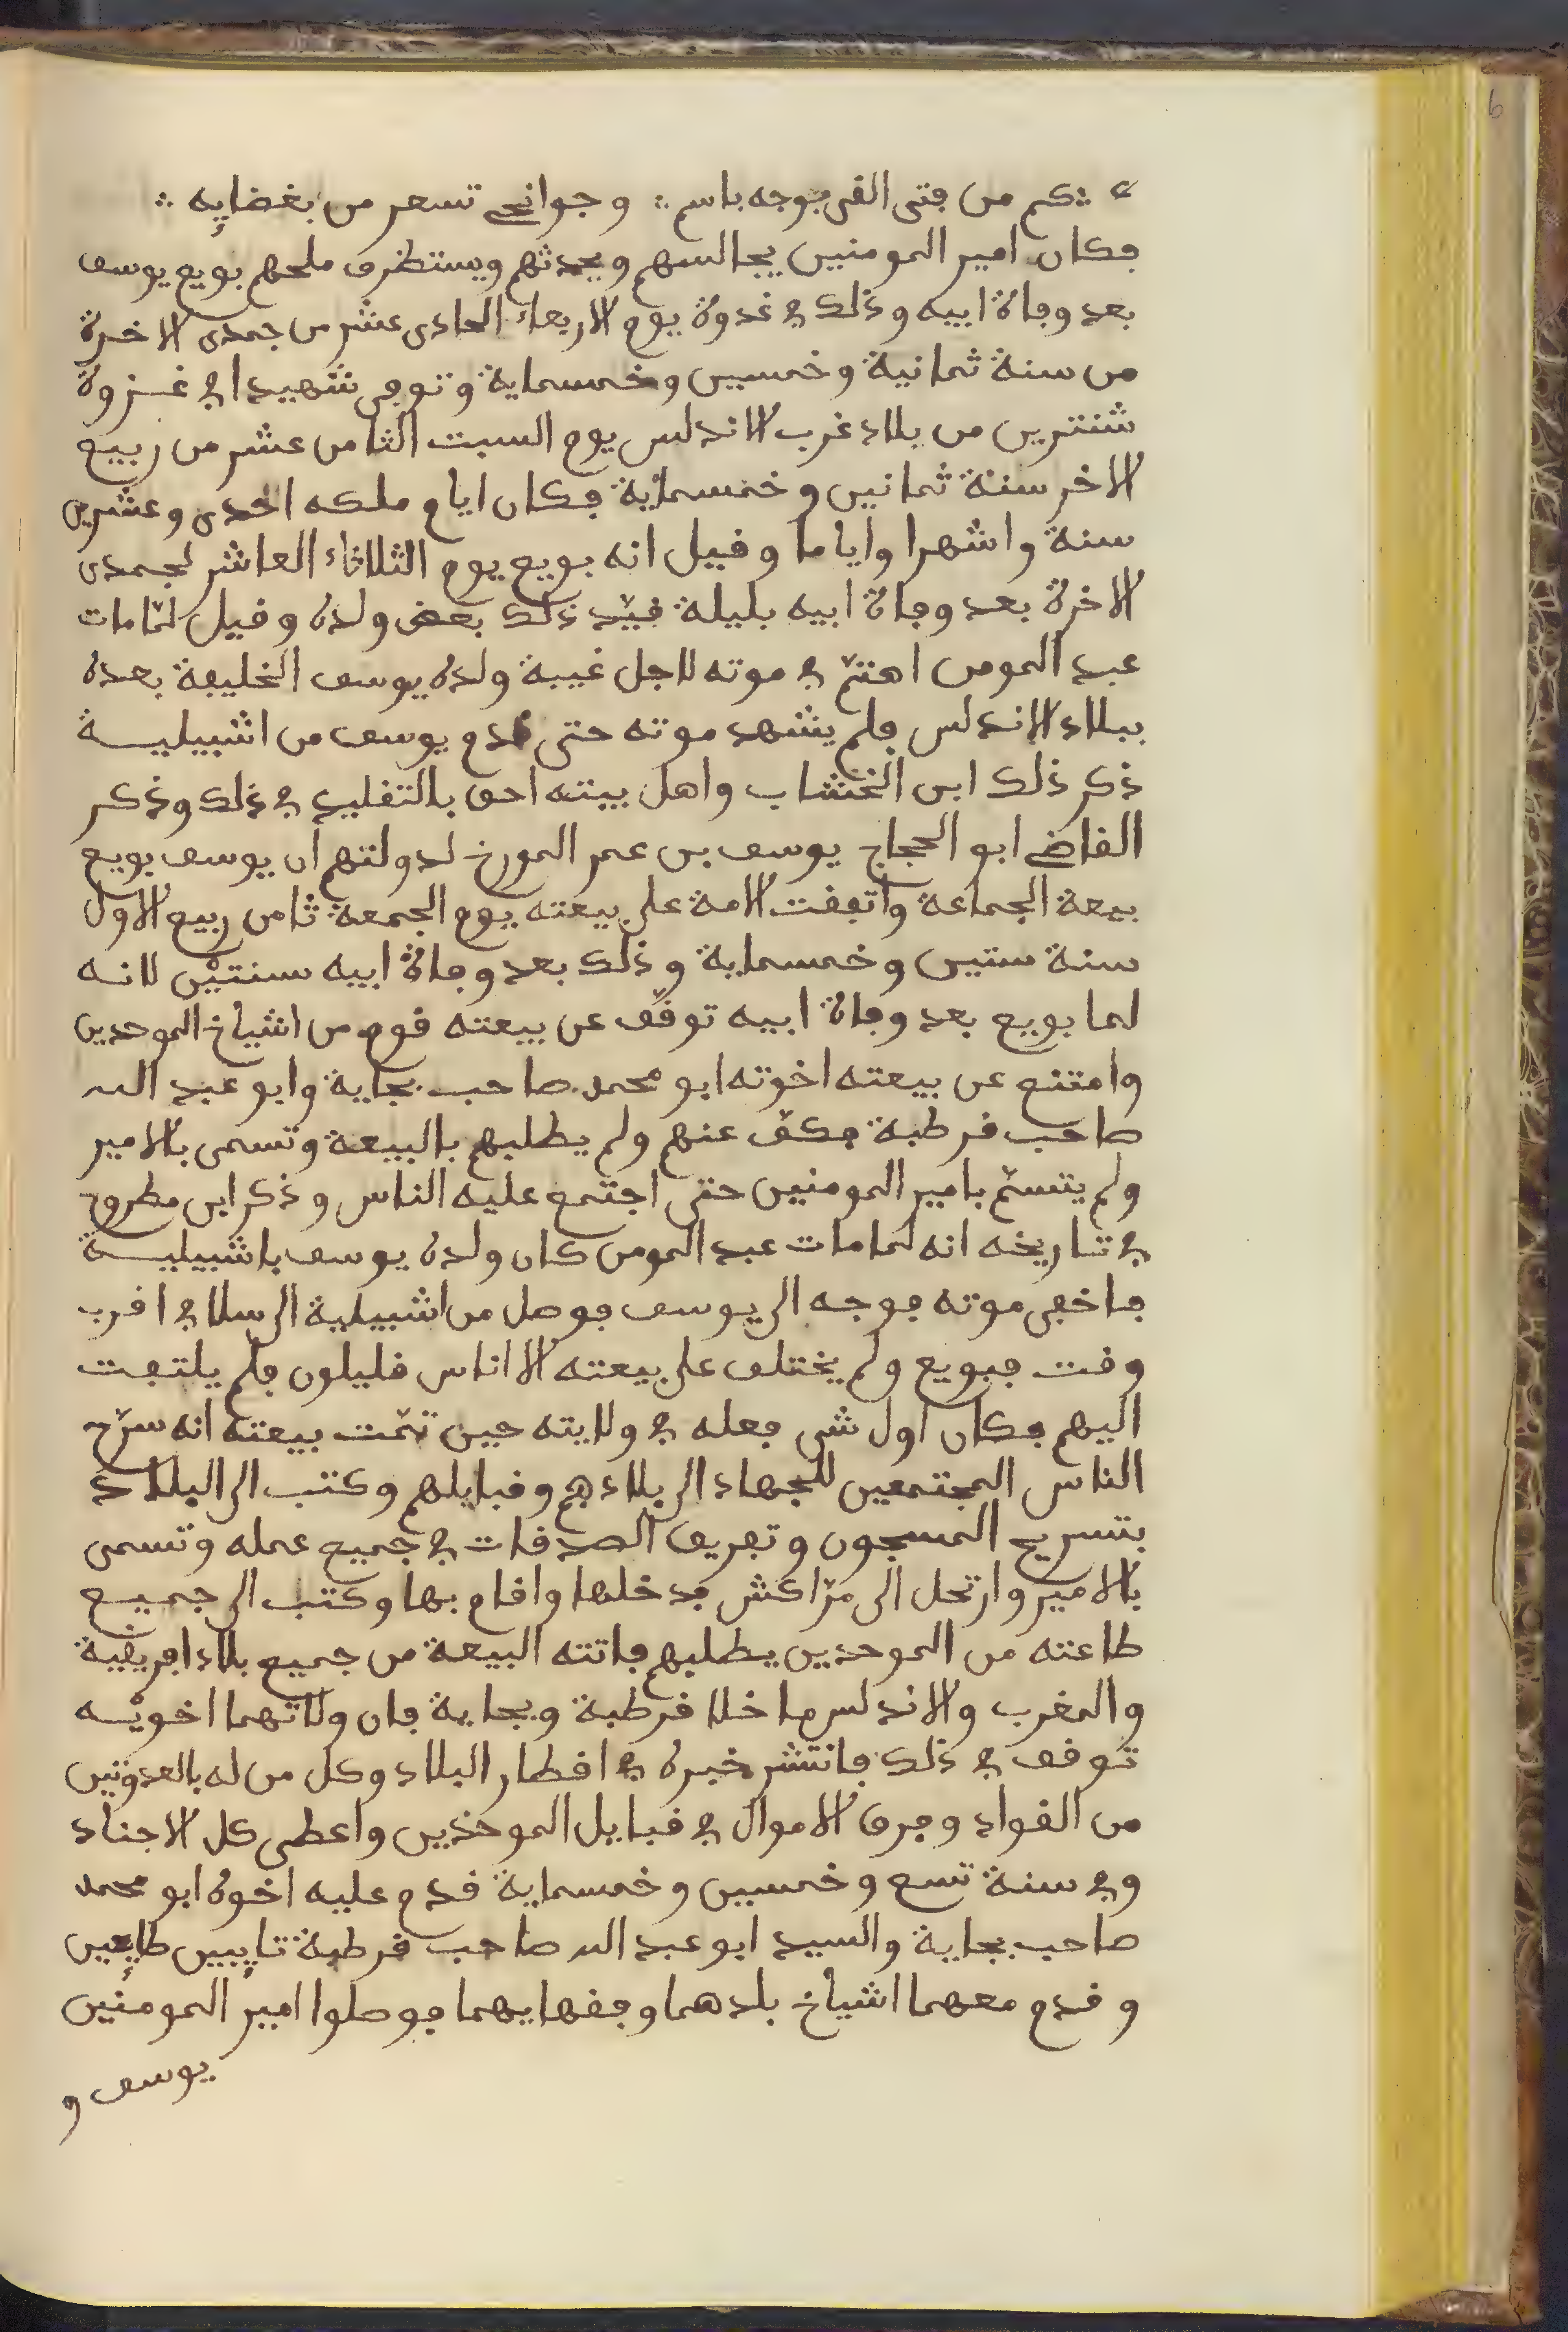 كم من فتى القى بوجه باسم ∴ وجوانحى تسعر من بغضايه ∴
فكان امير المومنين يجالسهم ويحدثهم ويستظرف ملحهم بويع يوسف
بعد وفاة ابيه وذلك في غدوة يوم الاربعاء الحادى عشر من جمدى الاخرة
من سنة ثمانية وخمسين وخمسماية وتوفى شهيدا في غزوة
شنترين من بلاد غرب الاندلس يوم السبت الثامن عشر من ربيع
الاخر سنة ثمانين وخمسماية فكان ايام ملكه احدى وعشرين
سنة واشهرا واياما وقيل انه بويع يوم الثلاثاء العاشر لجمدى
الاخرة بعد وفاة ابيه بليلة قيّد ذلك بعض ولده وقيل لمّا مات
عبد المومن اهتمّ في موته لاجل غيبة ولده يوسف الخليفة بعده
ببلاد الاندلس فلم يشهد موته حتى قدم يوسف من اشبيلية
ذكر ذلك ابن الخشاب واهل بيته احق بالتقليد في ذلك وذكر
القاضي ابو الحجاج يوسف بن عمر المورخ لدولتهم ان يوسف بويع
بيعة الجماعة واتفقت الامة على بيعته يوم الجمعة ثامن ربيع الاول
سنة ستين وخمسماية وذلك بعد وفاة ابيه سنتيْن لانه
لما بويع بعد وفاة ابيه توقّف عن بيعته قوم من اشياخ الموحدين
وامتنع عن بيعته اخوته ابو محمد صاحب بجاية وابو عبد الله
صاحب قرطبة فكفّ عنهم ولم يطلبهم بالبيعة وتسمى بالامير
ولم يتسمّ بامير المومنين حتى اجتمع عليه الناس وذكر ابن مطروح
في تاريخه انه لما مات عبد المومن كان ولده يوسف باشبيلية
فاخفى موته فوجه الى يوسف فوصل من اشبيلية الى سلا في اقرب
وقت فبويع ولم يختلف على بيعته الا اناس قليلون فلم يلتفت
اليهم فكان اول شى فعله في ولايته حين تمّت بيعته انه سرّح
الناس المجتمعين للجهاد الى بلادهم وقبايلهم وكتب الى البلاد
بتسريح المسجون وتفريق الصدقات في جميع عمله وتسمى
بالامير وارتحل الى مرّاكش فدخلها واقام بها وكتب الى جميع
طاعته من الموحدين يطلبهم فاتته البيعة من جميع بلاد افريقية
والمغرب والاندلس ما خلا قرطبة وبجاية فان ولاتهما اخويْه
توقف في ذلك فانتشر خبره في اقطار البلاد وكل من له بالعدوتين
من القواد وفرق الاموال في قبايل الموحدين واعطى كل الاجناد
وفي سنة تسع وخمسين وخمسماية قدم عليه اخوه ابو محمد
صاحب بجاية والسيد ابو عبد الله صاحب قرطبة تايبين طايعين
وقدم معهما اشياخ بلدهما وفقهايهما فوصلوا امير المومنين
يوسف و